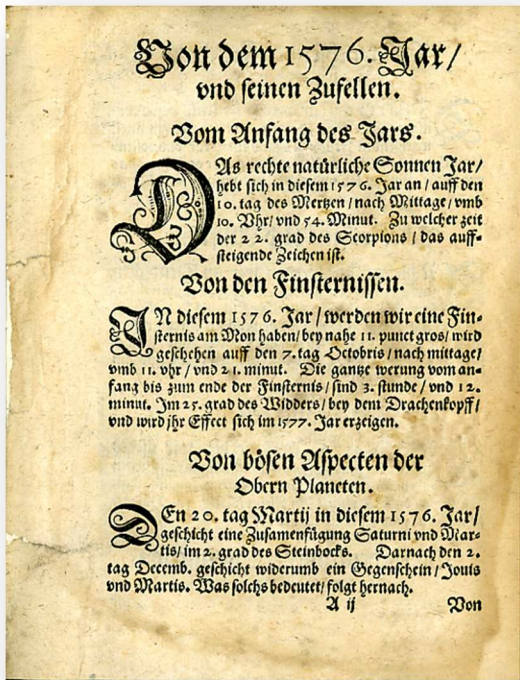 Von dem 1576. Jar/
vnd seinen Zufellen.
Vom Anfang des Jars.
DAs rechte natürliche Sonnen Jar/
hebt sich in diesem 1576. Jar an/auff den
10. tag des Mertzen/nach Mittage/vmb
10. Vhr/vnd 54. Minut. Zu welcher zeit
der 22. grad des Scorpions/das auff-
steigende Zeichen ist.
Von den Finsternissen.
IN diesem 1576. Jar/werden wir eine Fin-
sternis am Mon haben/bey nahe 11. punct gros/wird
geschehen auff den 7. tag Octobris/nach mittage/
vmb 11. vhr/vnd 21. minut. Die gantze werung vom an-
fang bis zum ende der Finsternis/sind 3. stunde/vnd 12.
minut. Im 25. grad des Widders/bey dem Drachenkopff/
vnd wird jhr Effect sich im 1577. Jar erzeigen.
Von bösen Aspecten der
Obern Planeten.
DEn 20. tag Martij in diesem 1576. Jar/
geschicht eine Zusamenfügung Saturni vnd Mar-
tis/im 2. grad des Steinbocks. Darnach den 2.
tag Decemb. geschicht widerumb ein Gegenschein/Jouis
vnd Martis. Was solchs bedeutet/folgt hernach.
A ij Von